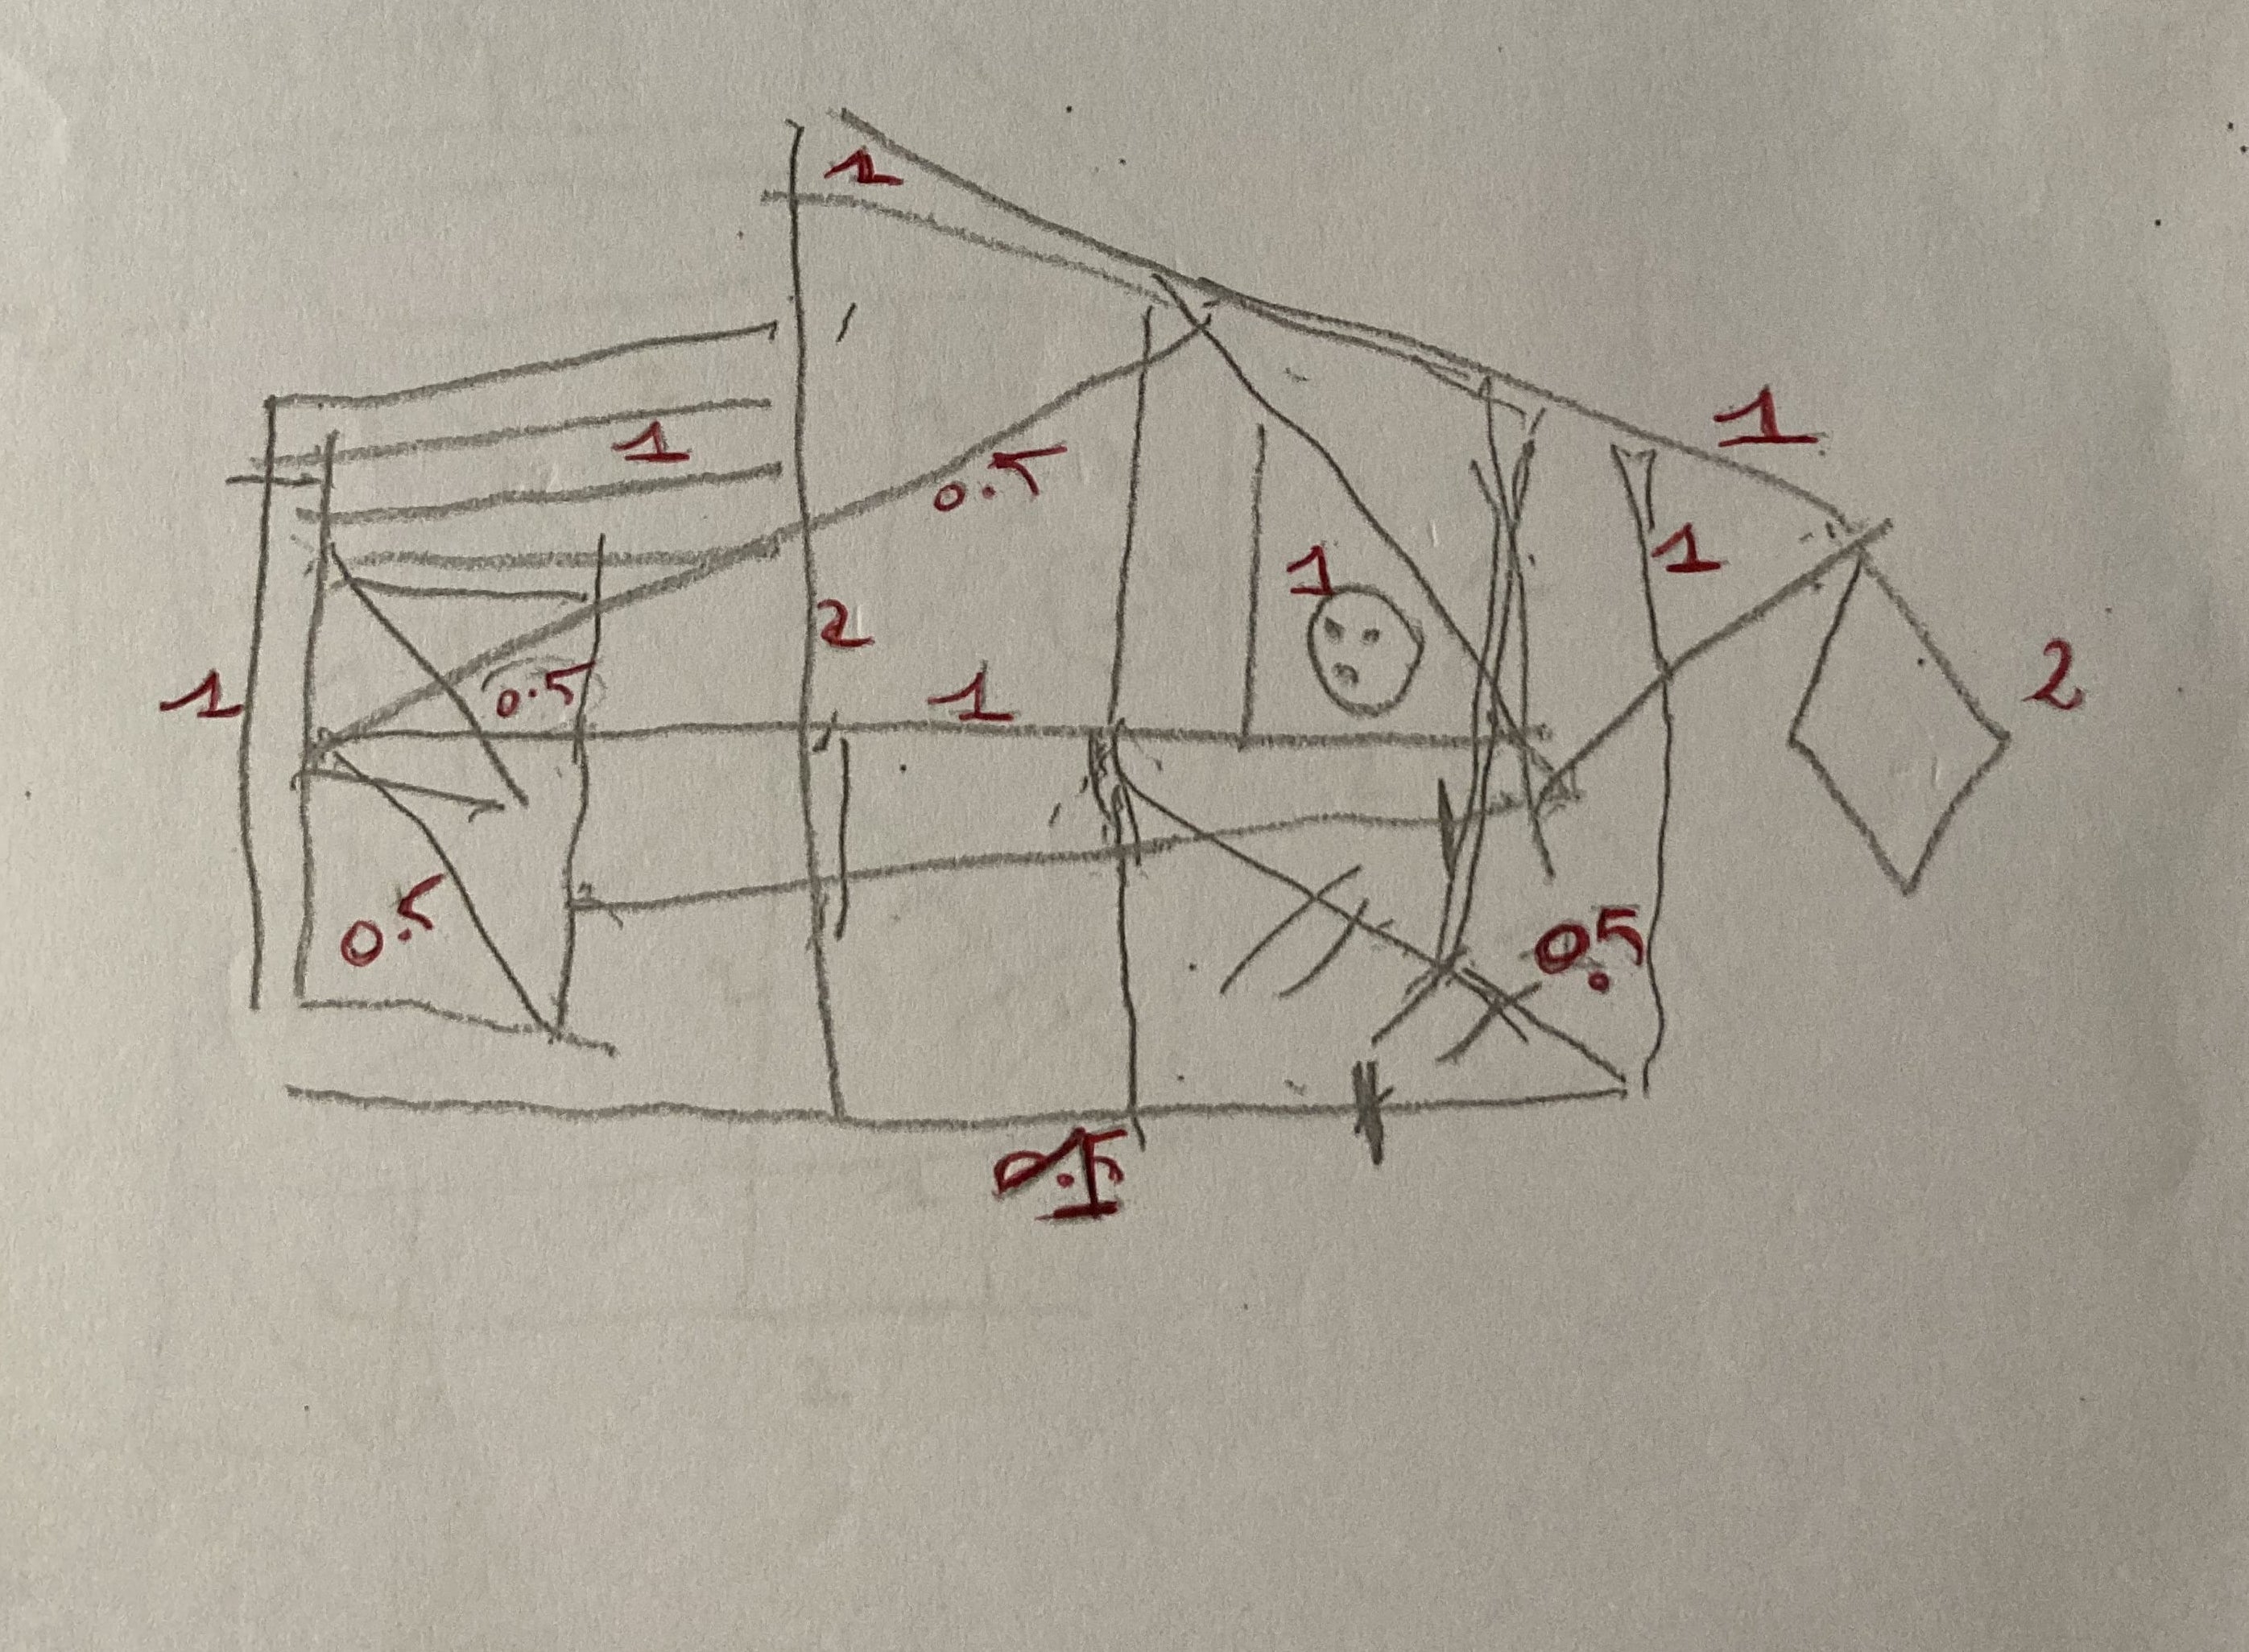 1
1
1
0.5
1
1
2
0.5
1
1
2
0.5
0.5
1